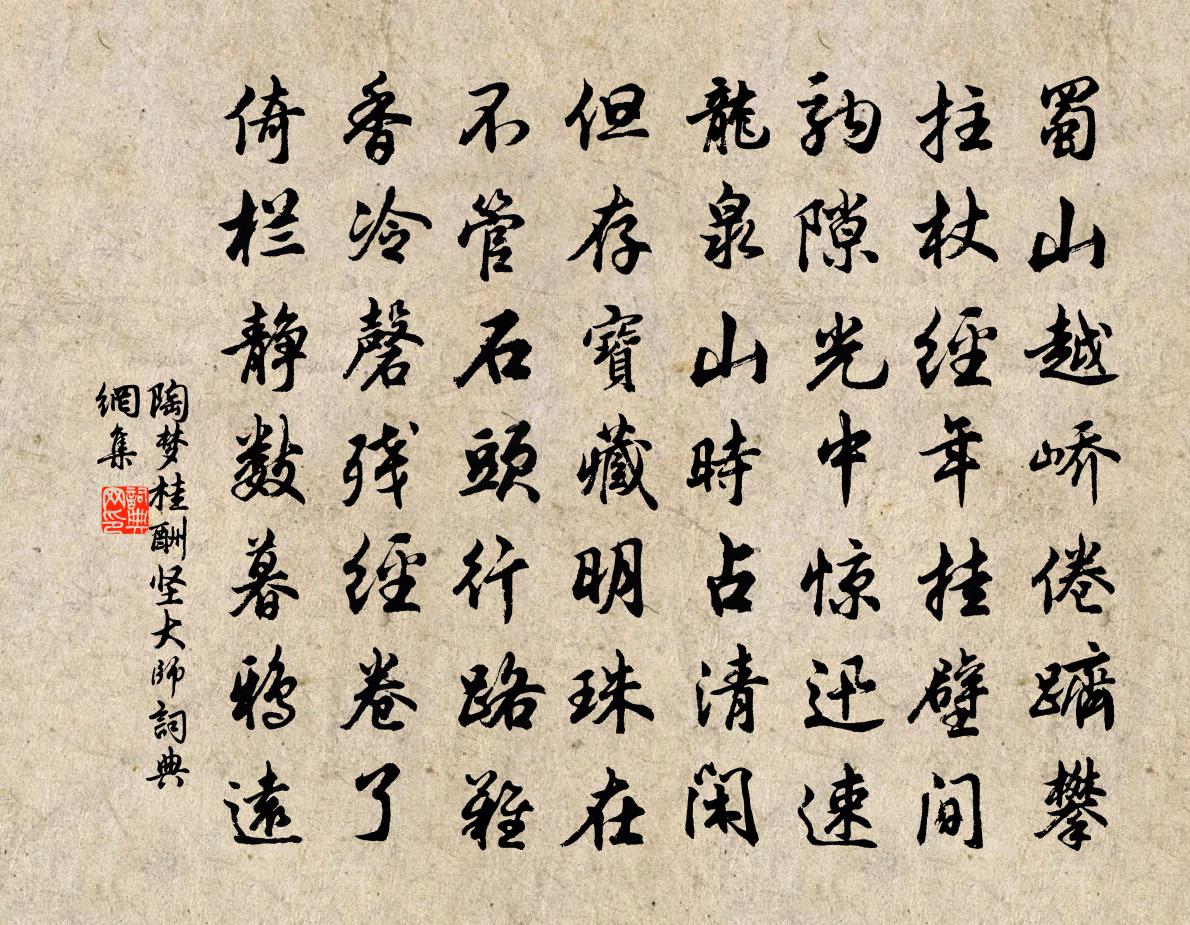 蜀山越峤倦躋攀
拄杖經年挂壁間
駒隙光中惊迅速
龍泉山時占清閑
但存寶藏明珠在
不管石頭行路難
香冷磬残經卷了
倚栏静数暮鴉遠
陶梦桂酬坚大師詞典
網集
詞典
网印